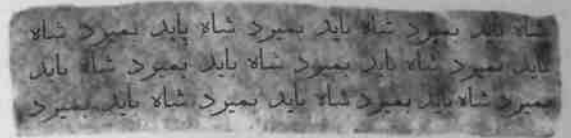 شاه باید بمیرد شاه باید بمیرد شاه باید بمیرد شاه
باید بمیرد شاه باید بمیرد شاه باید بمیرد شاه باید
بمیرد شاه باید بمیرد شاه باید بمیرد شاه باید بمیرد